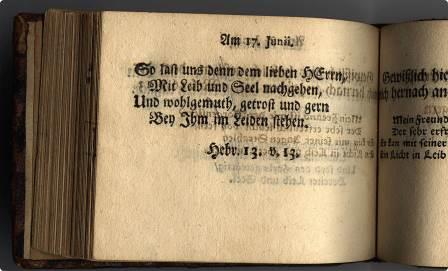 Am 17. Junii.
So last uns denn dem lieben HErrn,
Mit Leib und Seel nachgehen,
Und wohlgemuth, getrost und gern
Bey Ihm im Leiden stehen.
Hebr. 13. v. 13.
Gewißlich hie
hernach an
Mein Freund
Der sehr erfr
in Leib